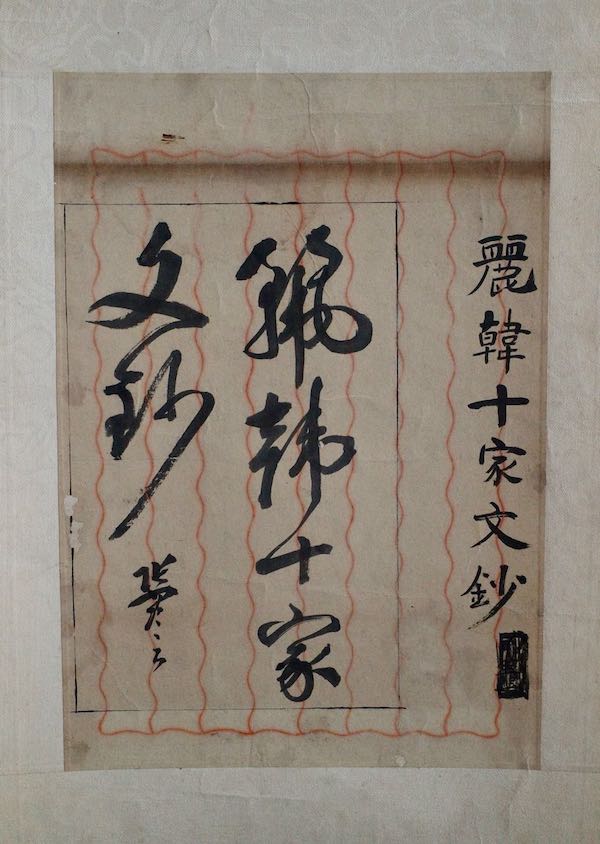 麗韓十家文鈔
麗韓十家
文鈔
張謇